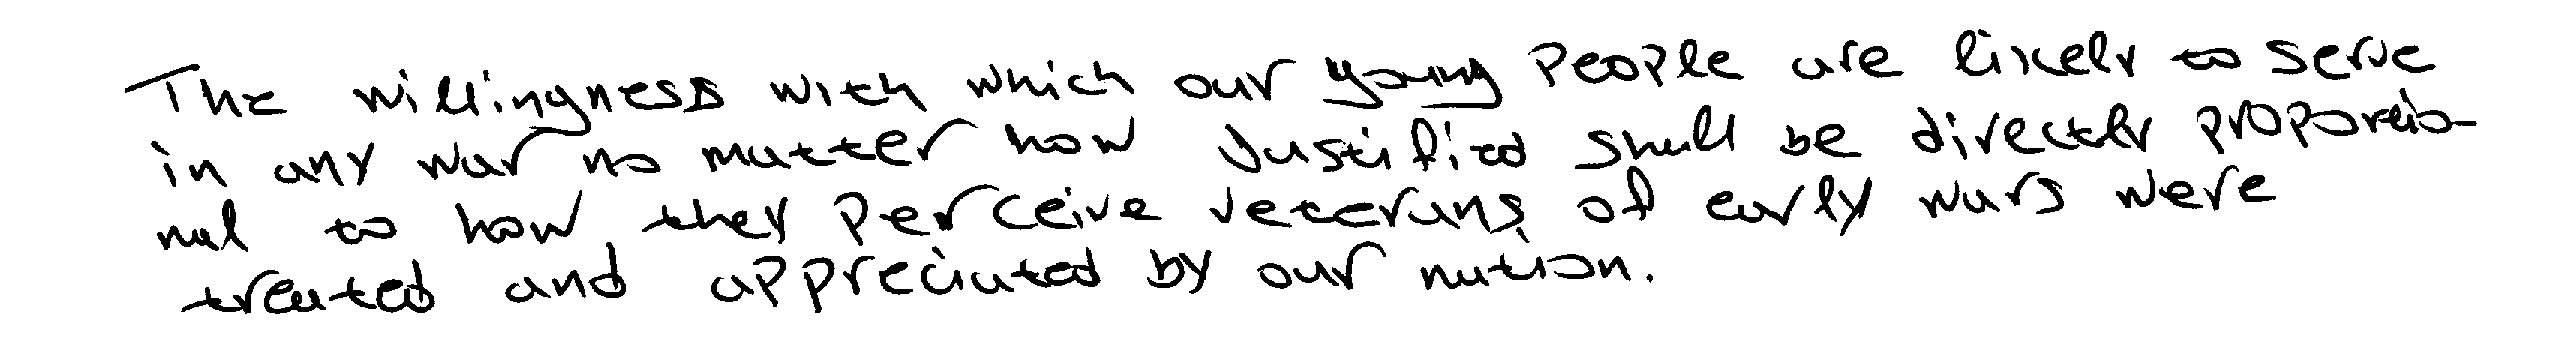 The willingness with which our young people are likely to serve
in any war no matter how justified shall be directly proportio-
nal to how they perceive veterans of early wars were
treated and appreciated by our nution.